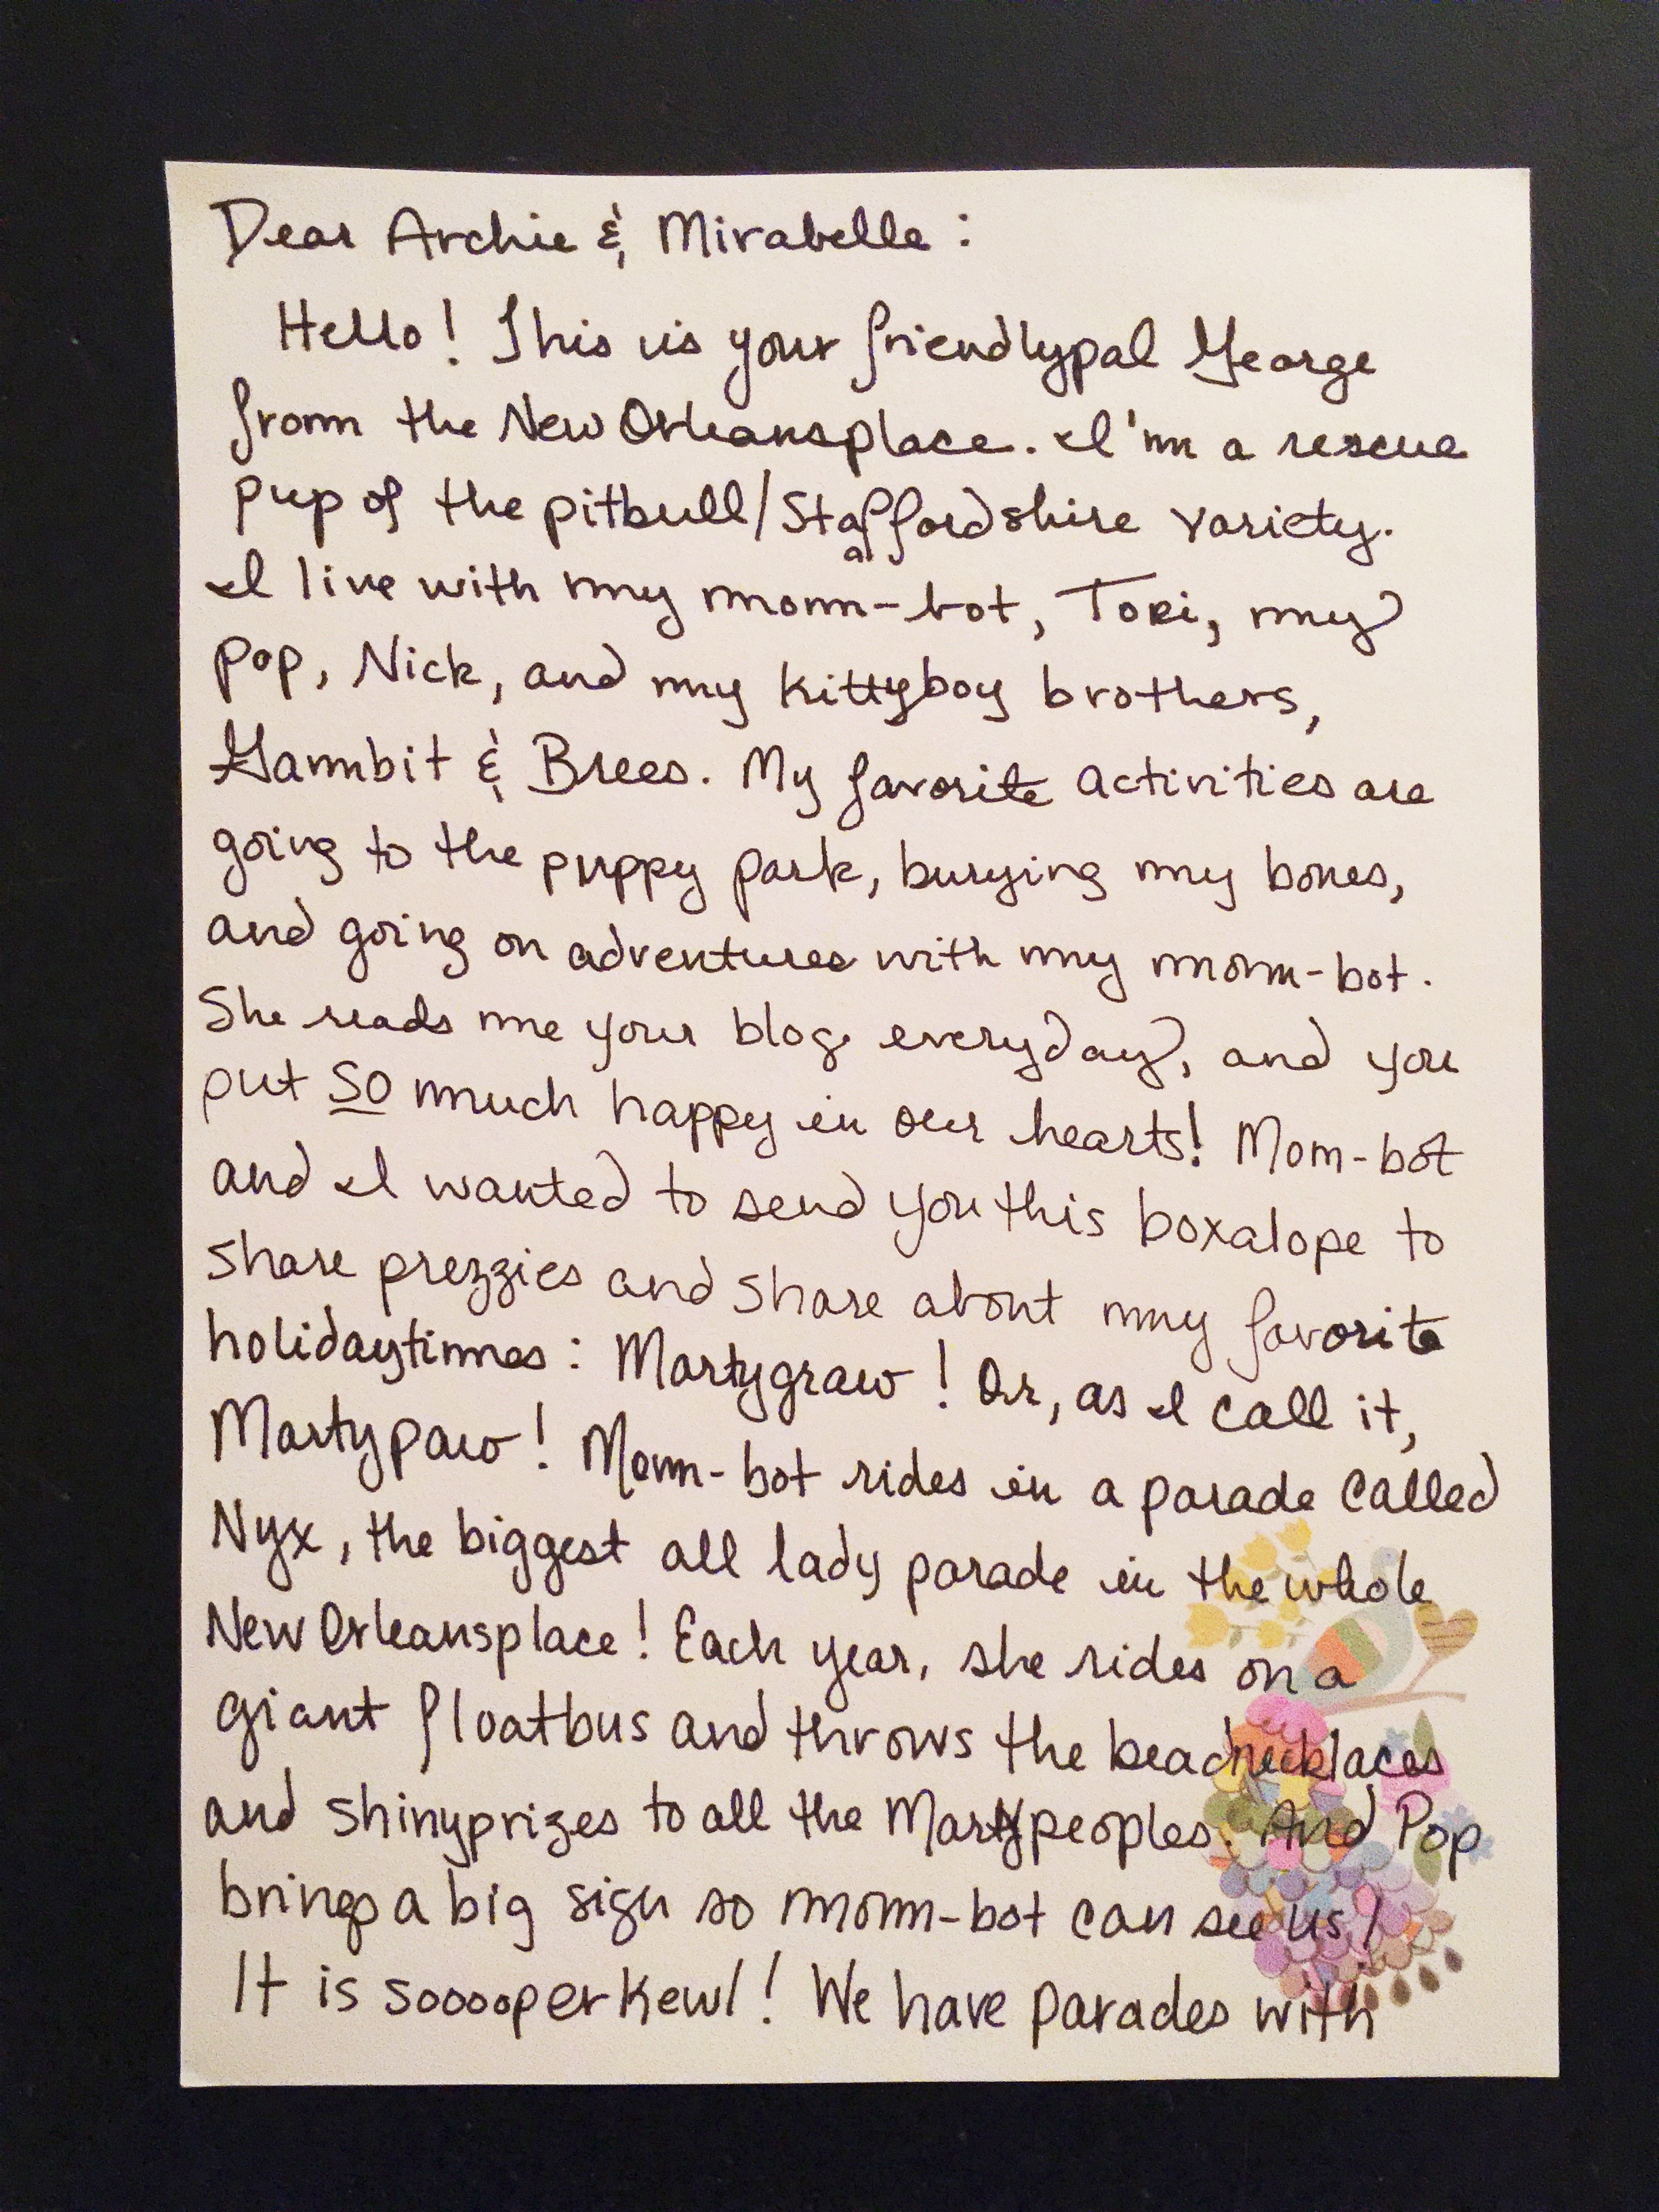 Dear Archie & Mirabelle:
Hello! This is your friendlypal George
from the NewOrleansplace. I'm a rescue
pup of the pitbull/Staffordshire variety.
I live with my mom-bot, Tori, my
pop, Nick, and my kittyboy brothers,
Gambit & Brees. My favorite activities are
going to the puppy park, burying my bones,
and going on adventures with my mom-bot.
She reads me your blog everyday, and you
put so much happy in our hearts! Mom-bot
and I wanted to send you this boxalope to
share prezzies and share about my favorite
holidaytimes: Martygraw! Or, as I call it,
Martypaw! Mom-bot rides in a parade called
Nyx, the biggest all lady parade in the whole
NewOrleansplace! Each year, she rides on a
giant floatbus and throws the beadnecklaces
and shinyprizes to all the Martypeoples. And Pop
brings a big sign so mom-bot can see us!
It is sooooperkewl! We have parades with